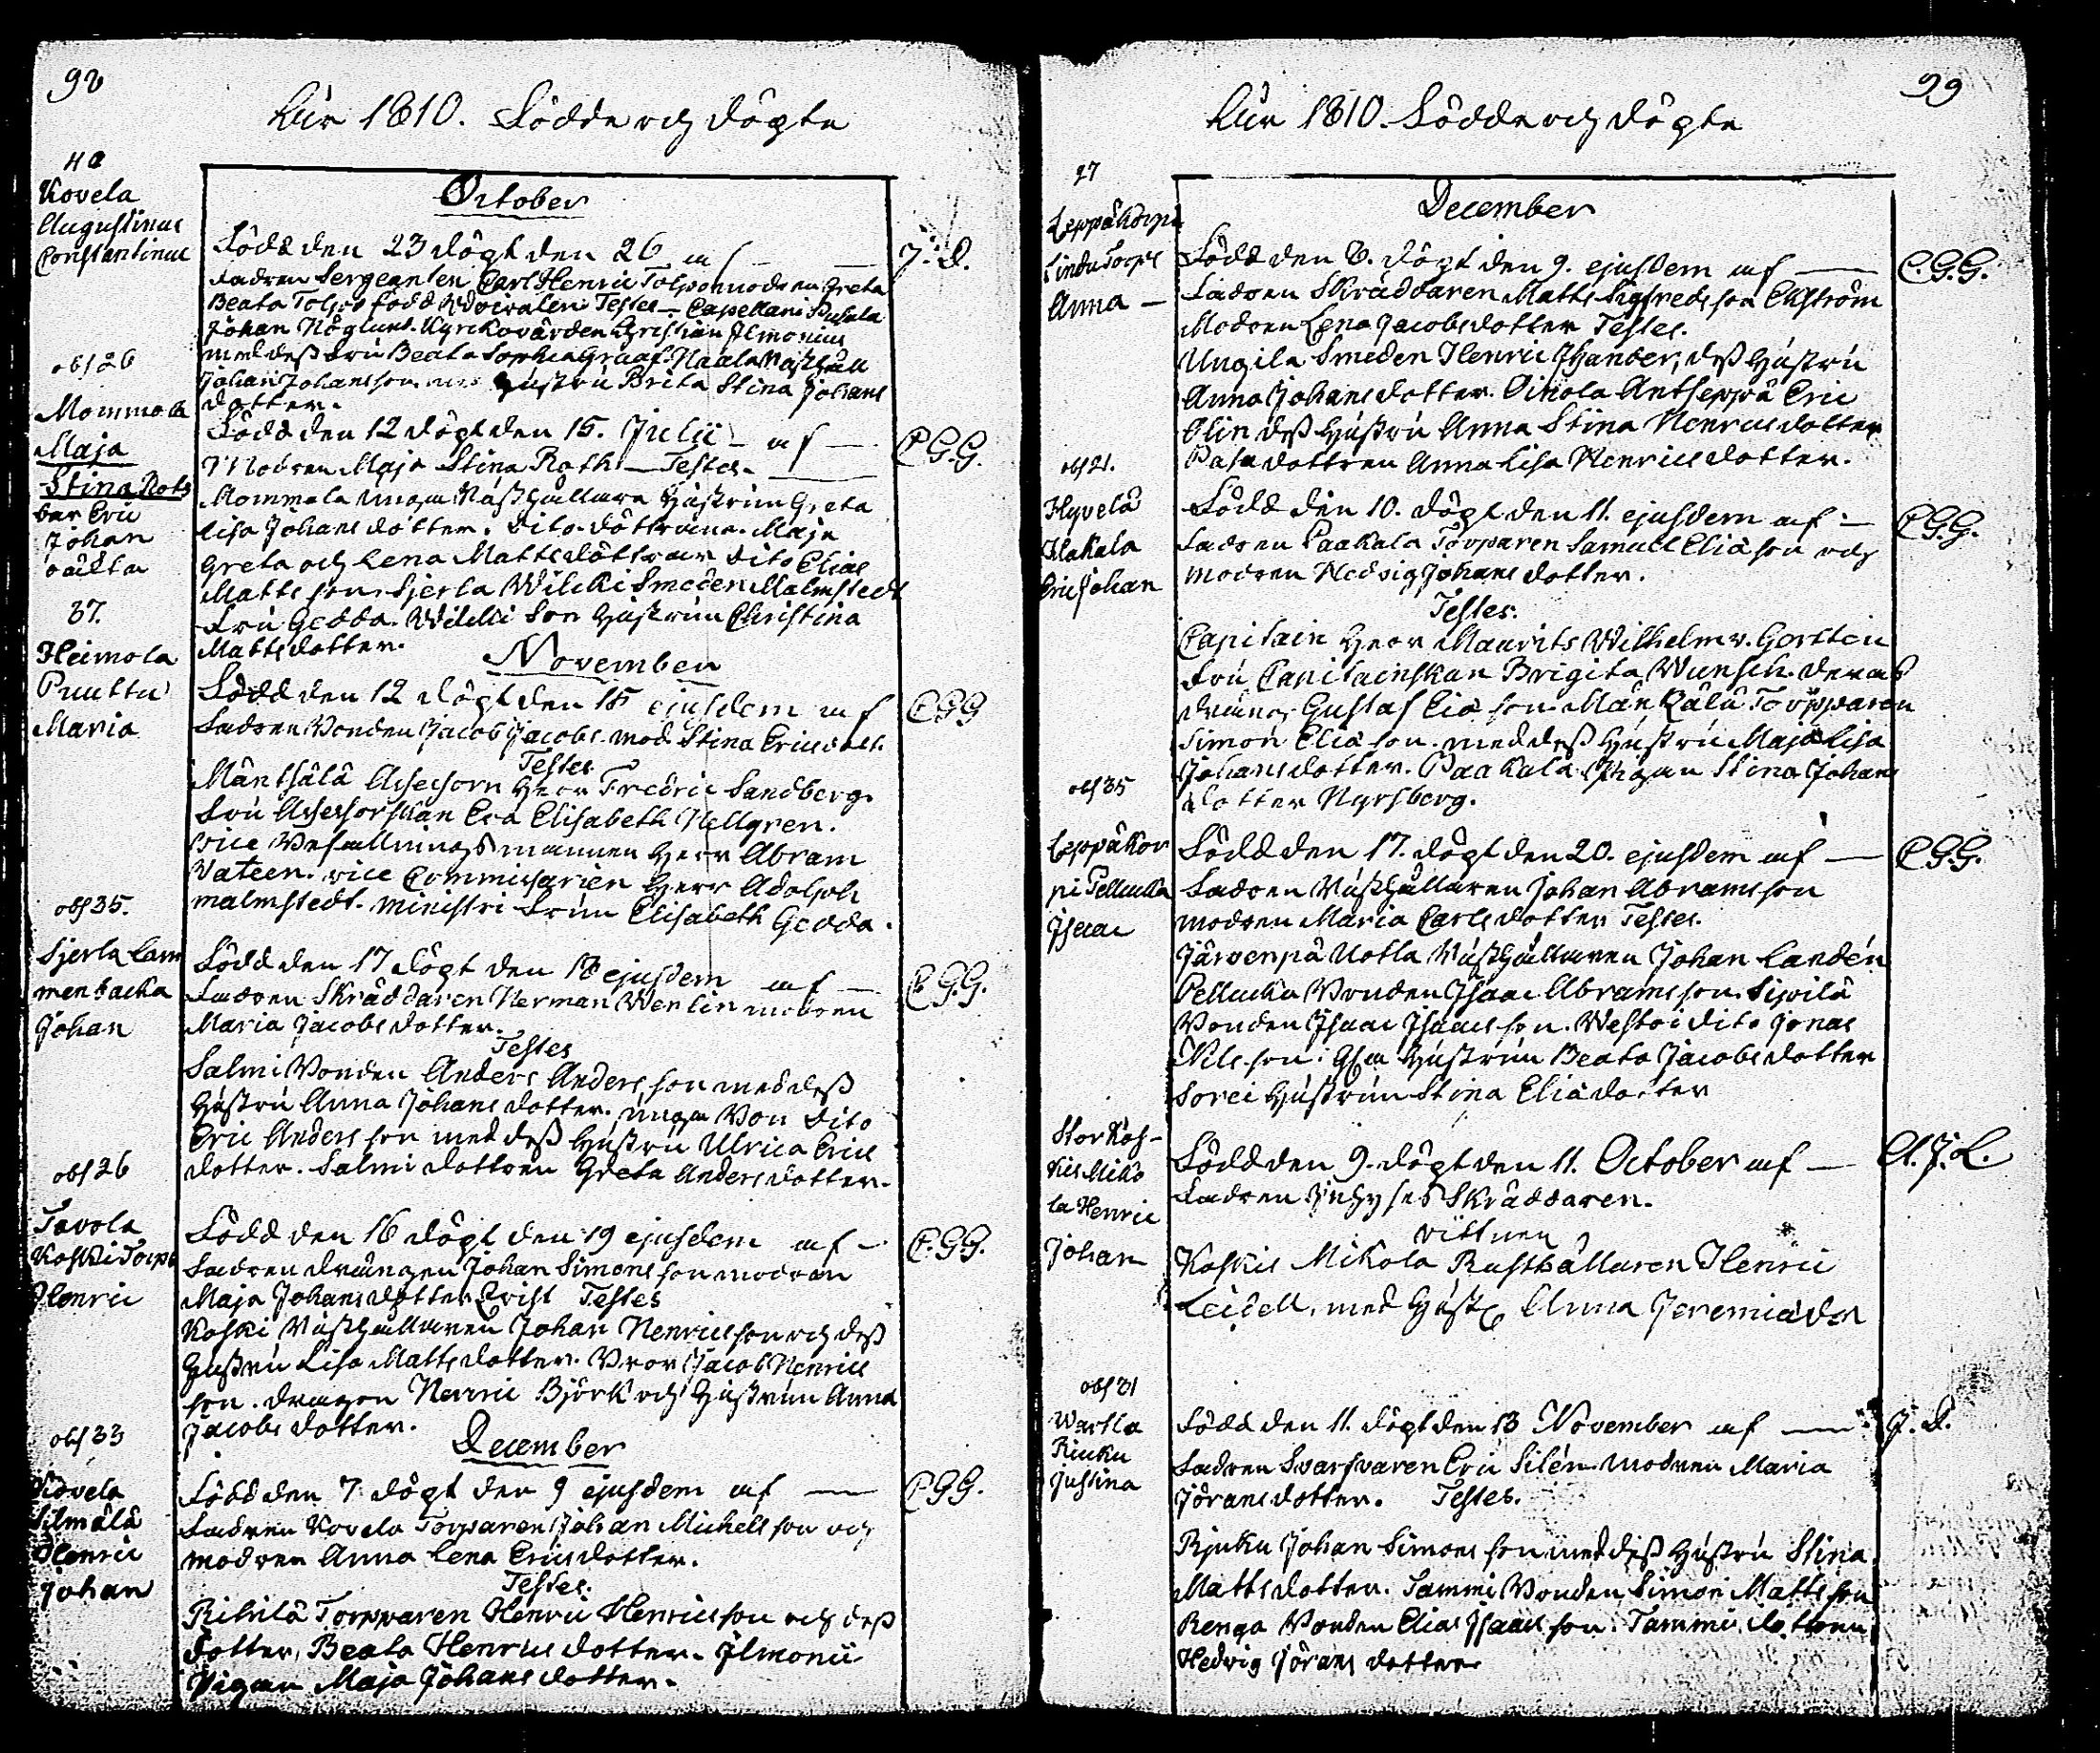 98
Åhr 1810. Födde och döpte
40
Kovela
Augustinus
Constantinus
October
Född den 23 döpt den 26 af
J. D.
Fadren Sergeanten Carl Henric Tolpo modren Greta
Beata Tolpo född Testes Capellani Pusula
Johan Höglund. Kyrckovärden Christian Ilmonius
med dess Fru Beata Sophia Graaf.
Johan Johansson hustru Brita Stina Johans
dotter.
obs 26
Mommola
Maja
Stina Roth
bar Eric
Johan
oäkta
Född den 12 döpt den 15. Julii af
C.G.G.
Modren Maja Stina Roth Testes.
Mommola unga Rusthållare hustrun Greta
Lisa Johans dotter. dito döttrarna Maja
Greta och Lena Matts döttrar dito Elias
Matts son. Sjerla Wilcki Smeden Malmstedt
Fru Gedda. Wilcki Son hustrun Christina
Matts dotter.
37.
Heimola
Puuttu
Maria
November
Född den 12 döpt den 15 ejusdem af
CGG
Fadren Bonden Jacob Jacobs. mod. Stina Ericsdott.
Testes
Mäntsälä Assessorn Herr Fredric Sandberg.
Fru Assessorskan Eva Elisabeth Hellgren.
vice Befallningsmannen Herr Abram
Vateen. vice Commissarien Herr Adolph
Malmstedt. Ministri Frun Elisabeth Gedda.
obs 35.
Sjerla Lam
menbacka
Johan
Född den 17 döpt den 18 ejusdem af
C.G.G.
Fadren Skräddaren Herman Wenlin modren
Maria Jacobs dotter.
Testes
Salmi Bonden Anders Anders son med dess
hustru Anna Johans dotter. unga Bon dito
Eric Anders son med dess hustru Ulrica Erics
dotter. Salmi dottren Greta Anders dotter.
obs 26
Tavola
Koski Torp
Henric
Född den 16 döpt den 19 ejusdem af
C.G.G.
Fadren drängen Johan Simons son modren
Maja Johans dotter Testes
Koski Rusthållaren Johan Henrics son och dess
hustru Lisa Matts dotter. Bror Jacob Henrics
son. dragon Henric Björk och hustrun Anna
Jacobs dotter.
obs 33
Kovela
Silmälä
Henric
Johan
December
Född den 7 döpt den 9 ejusdem af
CGG.
Fadren Kovela Torparen Johan Michels son och
modren Anna Lena Ericsdotter.
Testes.
Rihilä Torpparen Henric Henrics son och dess
dotter, Beata Henrics dotter. Ilmonii
Pigan Maja Johans dotter.
99
Åhr 1810. Födde och döpte
27
Leppäkorpi
Lindu Torp
Anna
December
Född den 8. döpt den 9. ejusdem af
C.G.G.
Fadren Skräddaren Matts Sigfreds son Ekström
Modren Lena Jacobsdotter Testes.
Ungila Smeden Henric Thander, dess hustru
Anna Johans dotter. Oinola Antseppä Eric
Olin dess hustru Anna Stina Henricsdotter
dottren Anna Lisa Henrics dotter.
obs 21.
Hyvelä
Hakala
Eric Johan
Född den 10. döpt den 11. ejusdem af
CGG.
Fadren Paakala Torparen Samuel Elia son och
modren Hedvig Johans dotter.
Testes.
Capitain Herr Maurits Wilhelm v. Gertten
Fru Capitainskan Brigita Wunsch. deras
dräng Gustaf Elia son. Torpparen
Simon Elia son med dess hustru Maja Lisa
Johans dotter. Paakala Pigan Stina Johans
dotter Nyrsberg.
obs 35
Leppäkor
pi Pellucka
Isaac
Född den 17. döpt den 20. ejusdem af
C.G.G.
Fadren Rusthållaren Johan Abrams son
modren Maria Carls dotter Testes.
Järvenpä Uotla Rusthållaren Johan Landén
Pellucka Bonden Isaac Abrams son. Sipilä
Bonden Isaac Isaacs son. Westoi dito Jonas
Nils son. hustrun Beata Jacobs dotter
Sorri hustrun Stina Elia dotter
Stor Kos-
kis Miko
la Henric
Johan
Född den 9. döpt den 11. October af
A. J. L.
Fadren Skräddaren.
vittnen
Koskis Mikola Rusthållaren Henric
Leidell, med Anna Jeremiædot
obs 31
Wartla
Riuku
Justina
Född den 11. döpt den 13 November af
J. D.
Fadren Svarfvaren Eric Silén modren Maria
Jörans dotter. Testes.
Rjuku Johan Simons son med dess hustru Stina
Matts dotter. Tammi Bonden Simon Matts son
Renga Bonden Elias Isaacs son. Tammi dottren
Hedvig Jörans dotter